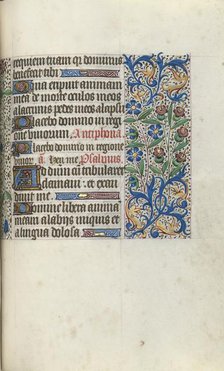 requiem tuam q̃ dominus
benefecit tibi
Quia eripuit animam
meam de morte oculos meos
a lacrimis pedes meos a lapsu
Placebo domino in regio
ne vivorum Antiphona
Placebo domino in regione
vivorum a. Heu me Psalmus
Ad dominum cum tribularer
clamavi et exau
divit me
Domine libera anima
meam a labijs iniquis et
a lingua dolosa